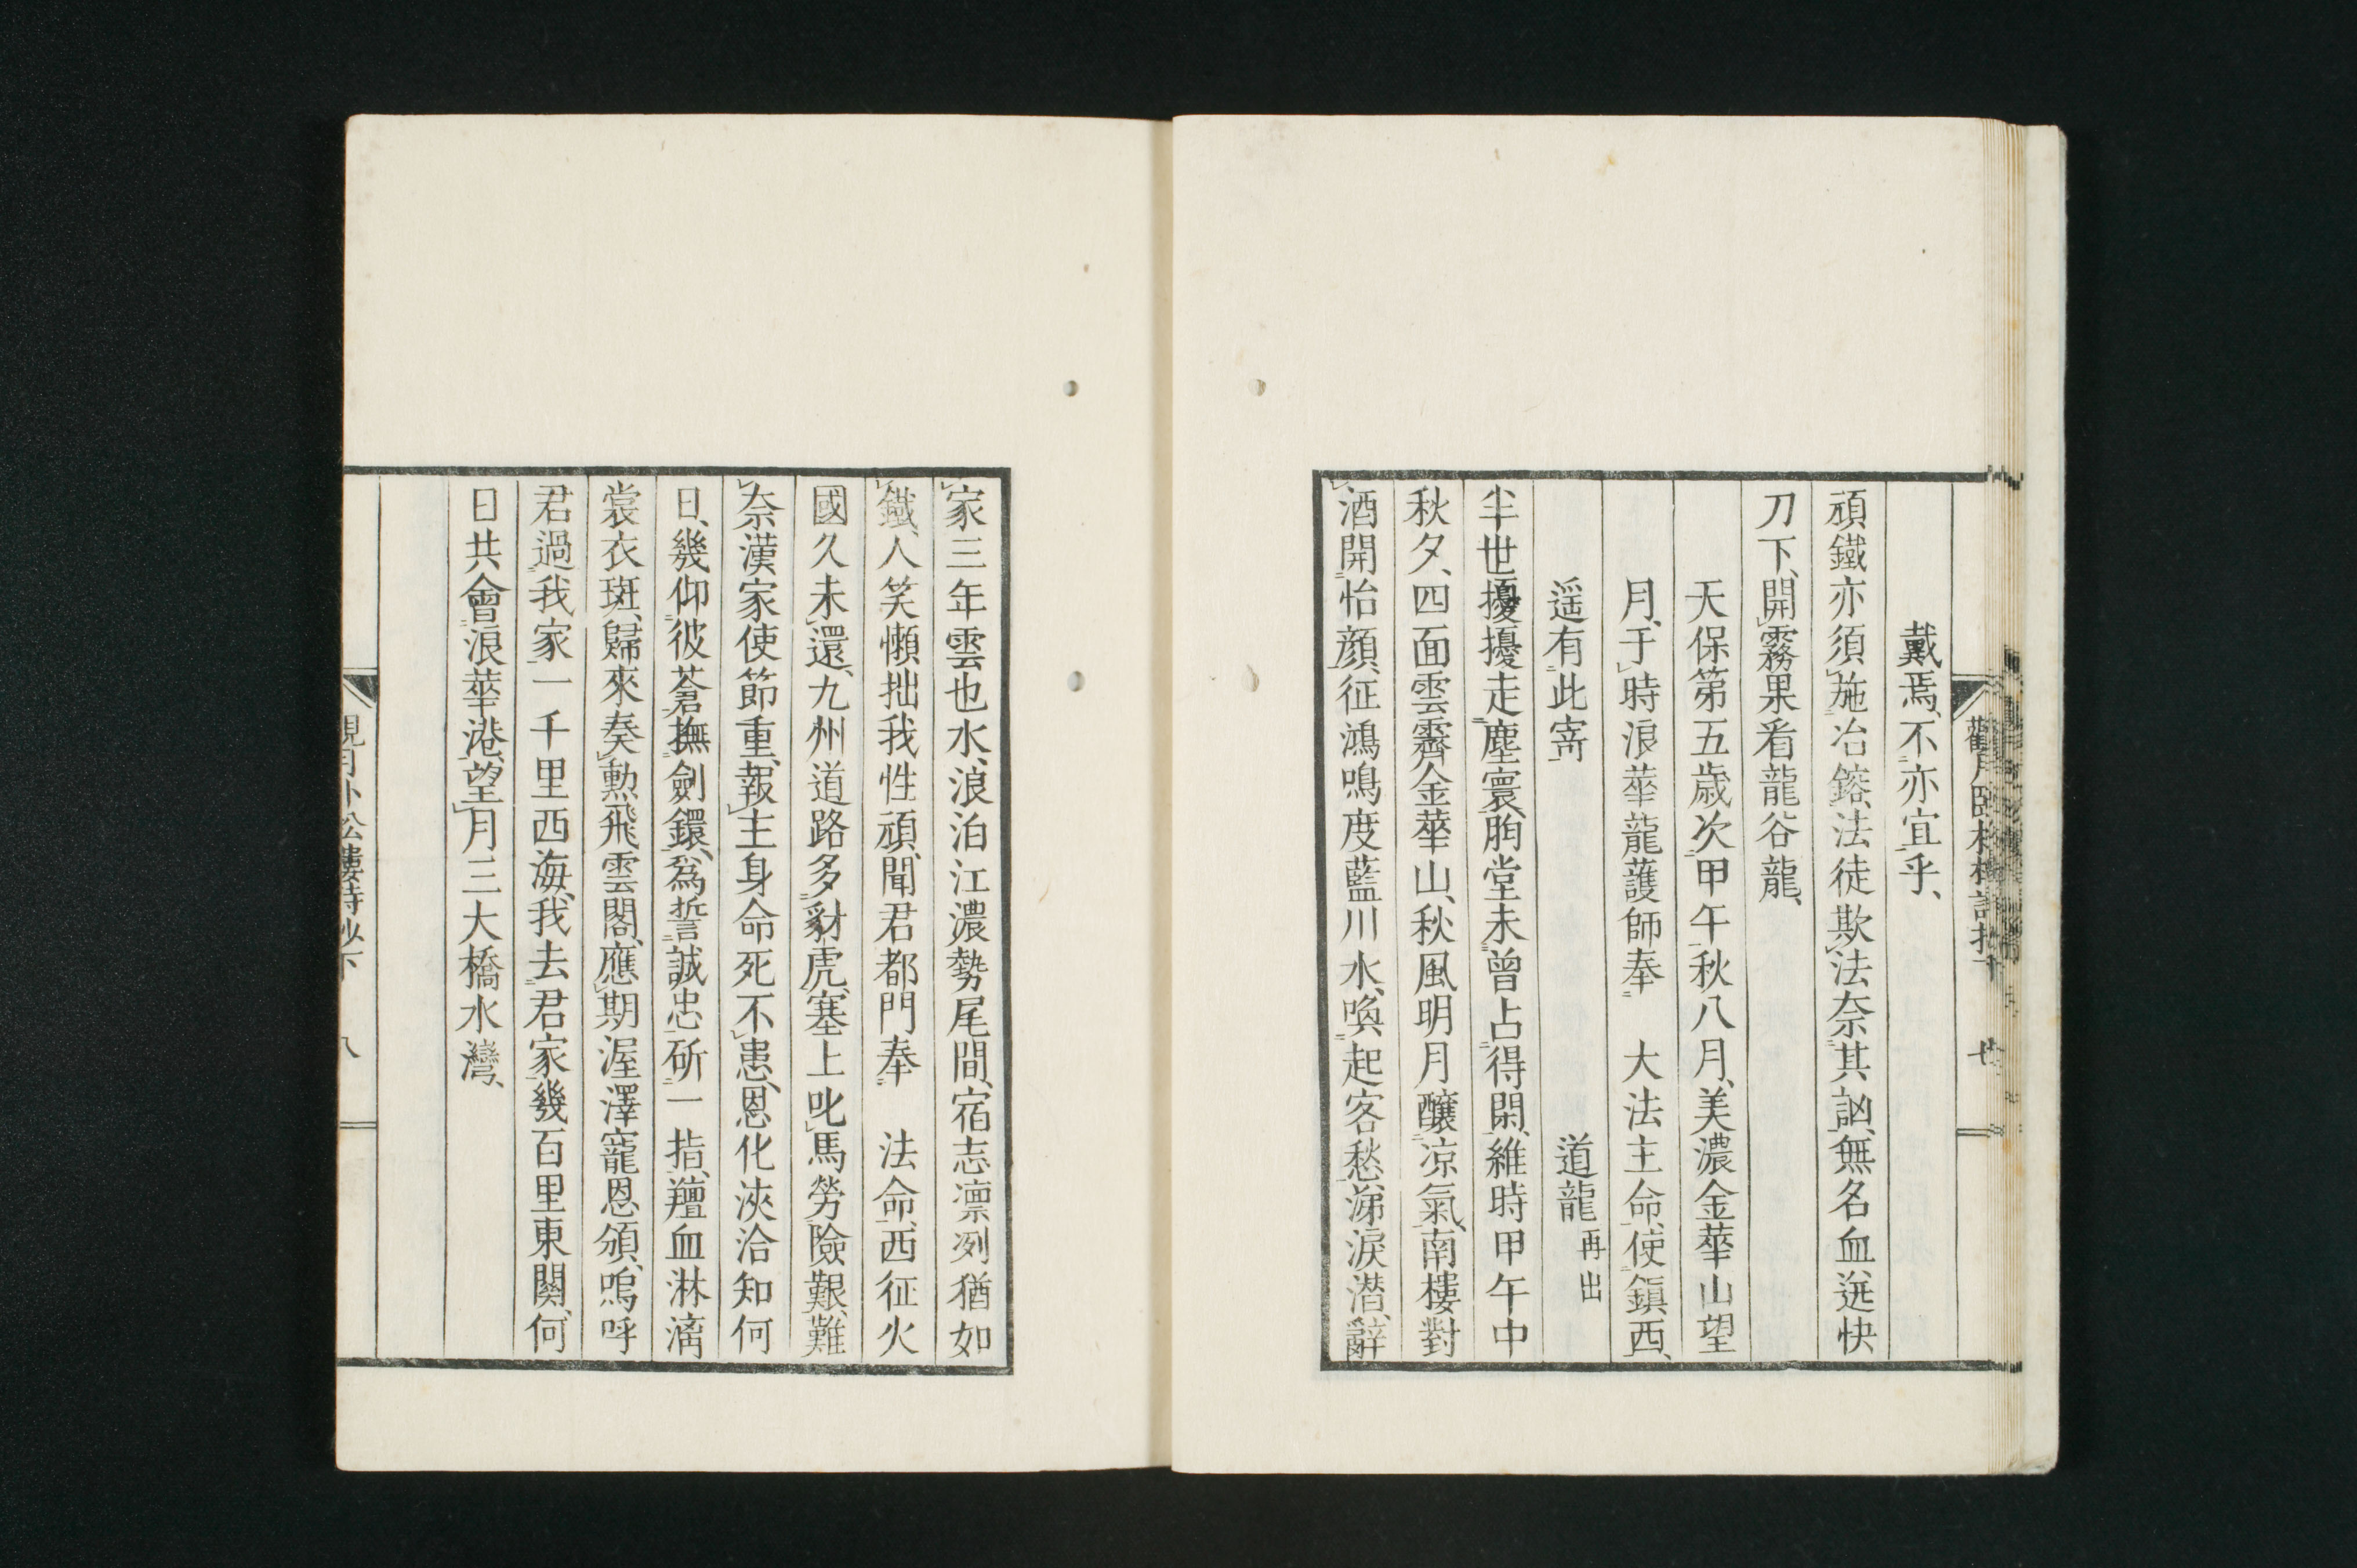 戴焉、不亦宜乎、
頑鐵亦須施冶鎔、法徒欺法奈其訩、無名血迸快
刀下、開霧果看龍谷龍、
天保第五歲次甲午秋八月、美濃金華山望
月、于時浪華龍護師奉　大法主命、使鎭西、
遥有此寄　道龍再出
半世擾擾走塵寰、胷堂未曾占得閑、維時甲午中
秋夕、四面雲霽金華山、秋風明月釀凉氣、南樓對
酒開怡顏、征鴻鳴度藍川水、喚起客愁涕淚潜、辭
家三年雲也水、浪泊江濃勢尾間、宿志凛冽猶如
鐵、人笑懶拙我性頑、聞君都門奉　法命、西征火
國久未還、九州道路多豺虎、塞上叱馬勞險艱、難
奈漢家使節重、報主身命死不患、恩化浹洽知何
日、幾仰彼蒼撫劍鐶、爲誓誠忠斫一指、羶血淋漓
裳衣斑、歸來奏勳飛雲閣、應期渥澤寵恩頒、嗚呼
君過我家一千里西海、我去君家幾百里東關、何
日共會浪華港、望月三大橋水灣、